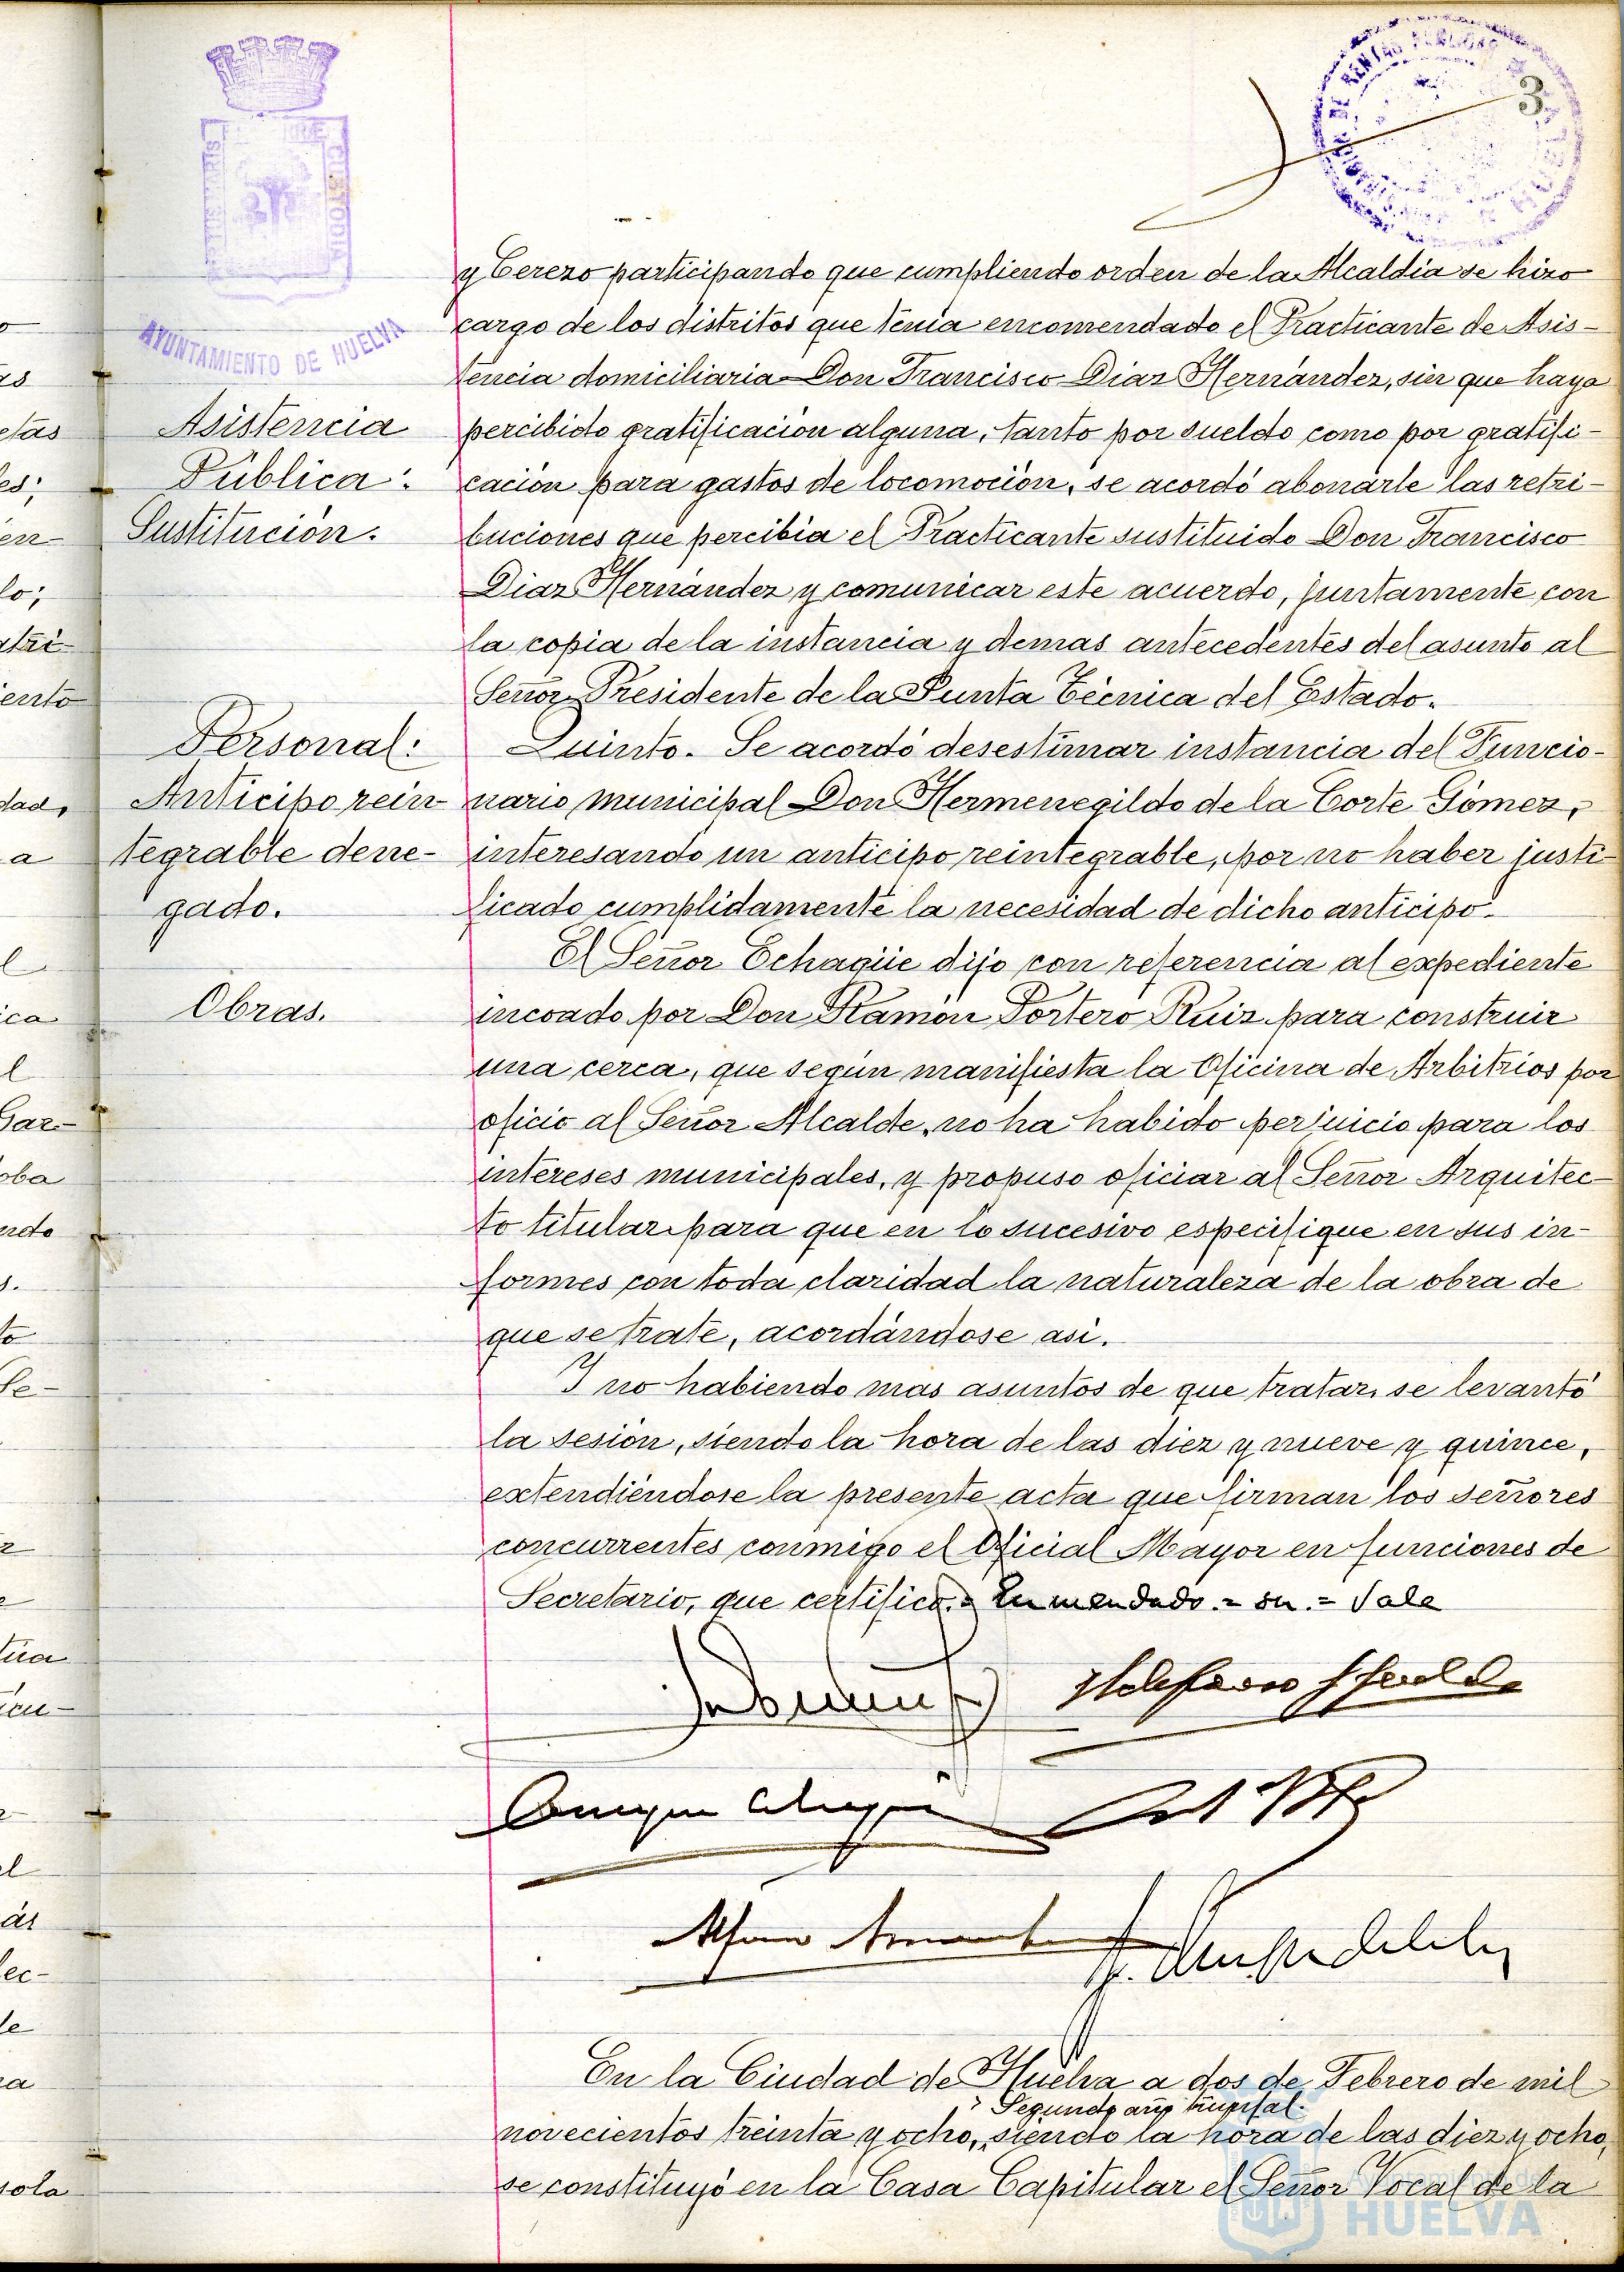 3
AYUNTAMIENTO DE HUELVA
y Cerezo participando que cumpliendo orden de la Alcaldia se hizo
cargo de los distritos que tenia encomendado el Practicante de Asis-
tencia domiciliaria Don Francisco Diaz Hernández, sin que haya
Asistencia
Pública:
Sustitución.
percibido gratificación alguna, tanto por sueldo como por gratifi-
cación para gastos de locomoción, se acordó abonarle las retri-
buciones que percibia el Practicante sustituido Don Francisco
Diaz Hernández y comunicar este acuerdo, juntamente con
la copia de la instancia y demas antecedentes del asunto al
Señor Presidente de la Junta Técnica del Estado.
Personal:
Anticipo rein-
tegrable dene-
gado.
Quinto. Se acordó desestimar instancia del Funcio-
nario municipal Don Hermenegildo de la Corte Gómez,
interesando un anticipo reintegrable, por no haber justi-
ficado cumplidamente la necesidad de dicho anticipo.
Obras.
El Señor Echagüe dijo con referencia al expediente
incoado por Don Ramón Portero Ruiz para construir
una cerca, que según manifiesta la Oficina de Arbitrios por
oficio al Señor Alcalde, no ha habido perjuicio para los
intereses municipales, y propuso oficiar al Señor Arquitec-
to titular para que en lo sucesivo especifique en sus in-
formes con toda claridad la naturaleza de la obra de
que se trate, acordándose asi.
Y no habiendo mas asuntos de que tratar, se levantó
la sesión, siendo la hora de las diez y nueve y quince,
extendiéndose la presente acta que firman los señores
concurrentes conmigo el Oficial Mayor en funciones de
Secretario, que certifico. = Enmendado. = on. = Vale
En la Ciudad de Huelva a dos de Febrero de mil
Segundo año triunfal.
novecientos treinta y ocho, siendo la hora de las diez y ocho,
se constituyó en la Casa Capitular el Señor Vocal de la
Ayuntamiento de
HUELVA